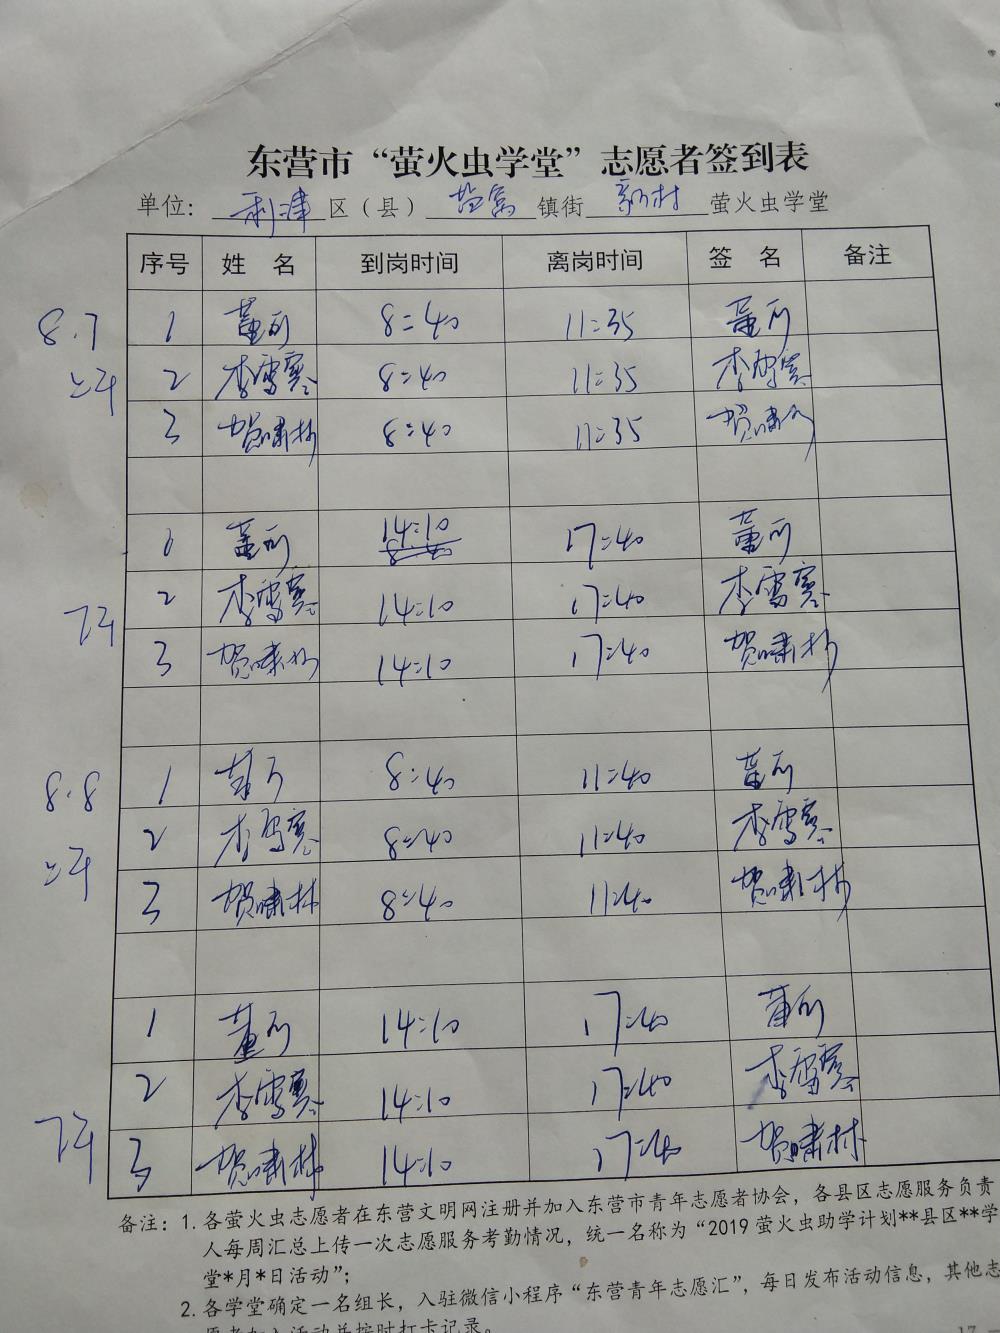 东营市“萤火虫学堂”志愿者签到表
单位：利津区（县）盐窝镇街新村萤火虫学堂
序号 姓 名 到岗时间 离岗时间 签 名 备注
8.7 1 8:40 11:35
上午 2 李雪寒 8:40 11:35 李雪寒
3 贺啸林 8:40 11:35 贺啸林
1 14:10 17:40
2 李雪寒 14:10 17:40 李雪寒
下午 3 贺啸林 14:10 17:40 贺啸林
8.8 1 8:40 11:40
2 李雪寒 8:40 11:40 李雪寒
上午 3 贺啸林 8:40 11:40 贺啸林
1 14:10 17:40
2 李雪寒 14:10 17:40 李雪寒
下午 3 贺啸林 14:10 17:40 贺啸林
备注：1.各萤火虫志愿者在东营文明网注册并加入东营市青年志愿者协会，各县区志愿服务负责
人每周汇总上传一次志愿服务考勤情况，统一名称为“2019萤火虫助学计划**县区**学
堂*月*日活动”；
2.各学堂确定一名组长，入驻微信小程序“东营青年志愿汇”，每日发布活动信息，其他志
愿者加入活动并按时打卡记录。